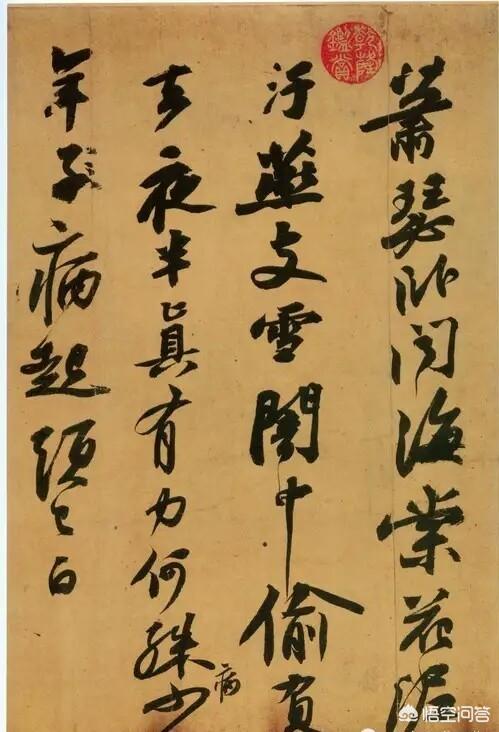 乾隆鑑賞
蕭瑟卧聞海棠花泥
汙燕支雪闇中偷負
去夜半真有力何殊病少
年子病起頭已白
悟空问答